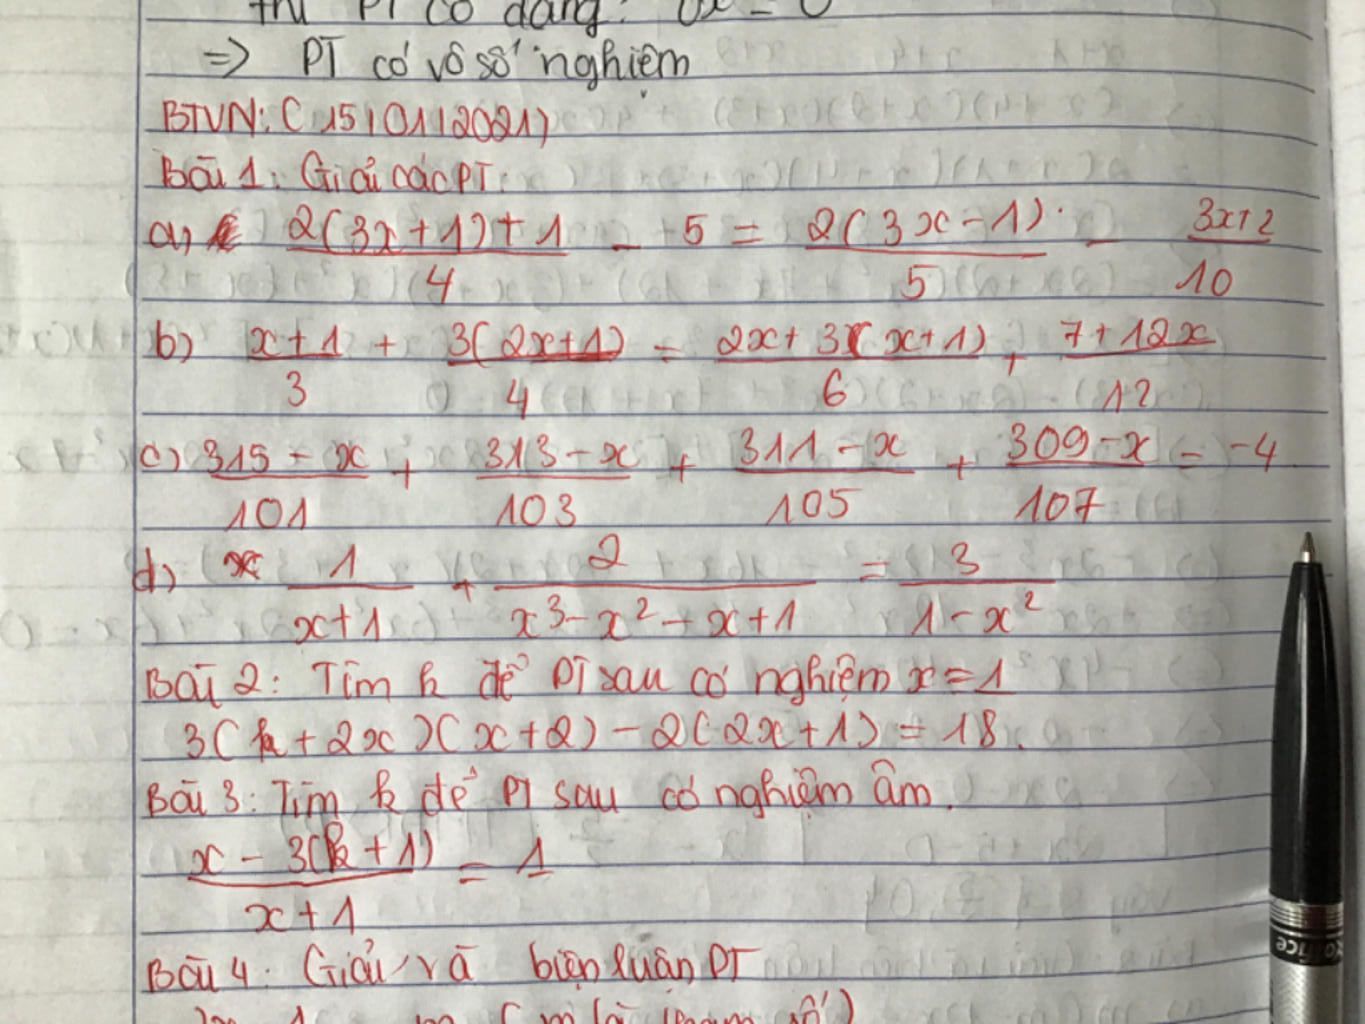 thì PT có dạng: 0x = 0
=> PT có vô số nghiệm
BTVN: (15/01/2021)
Bài 1: Giải các PT:
a) (2(3x+1)+1)/4 - 5 = (2(3x-1))/5 - (3x+2)/10
b) (x+1)/3 + (3(2x+1))/4 = (2x+3(x+1))/6 + (7+12x)/12
c) (315-x)/101 + (313-x)/103 + (311-x)/105 + (309-x)/107 = -4
d) 1/(x+1) + 2/(x³-x²-x+1) = 3/(1-x²)
Bài 2: Tìm k để PT sau có nghiệm x=1
3(k+2x)(x+2)-2(2x+1)=18.
Bài 3: Tìm k để PT sau có nghiệm âm.
(x-3(k+1))/(x+1) = 1
Bài 4: Giải và biện luận PT
m (m là tham số)